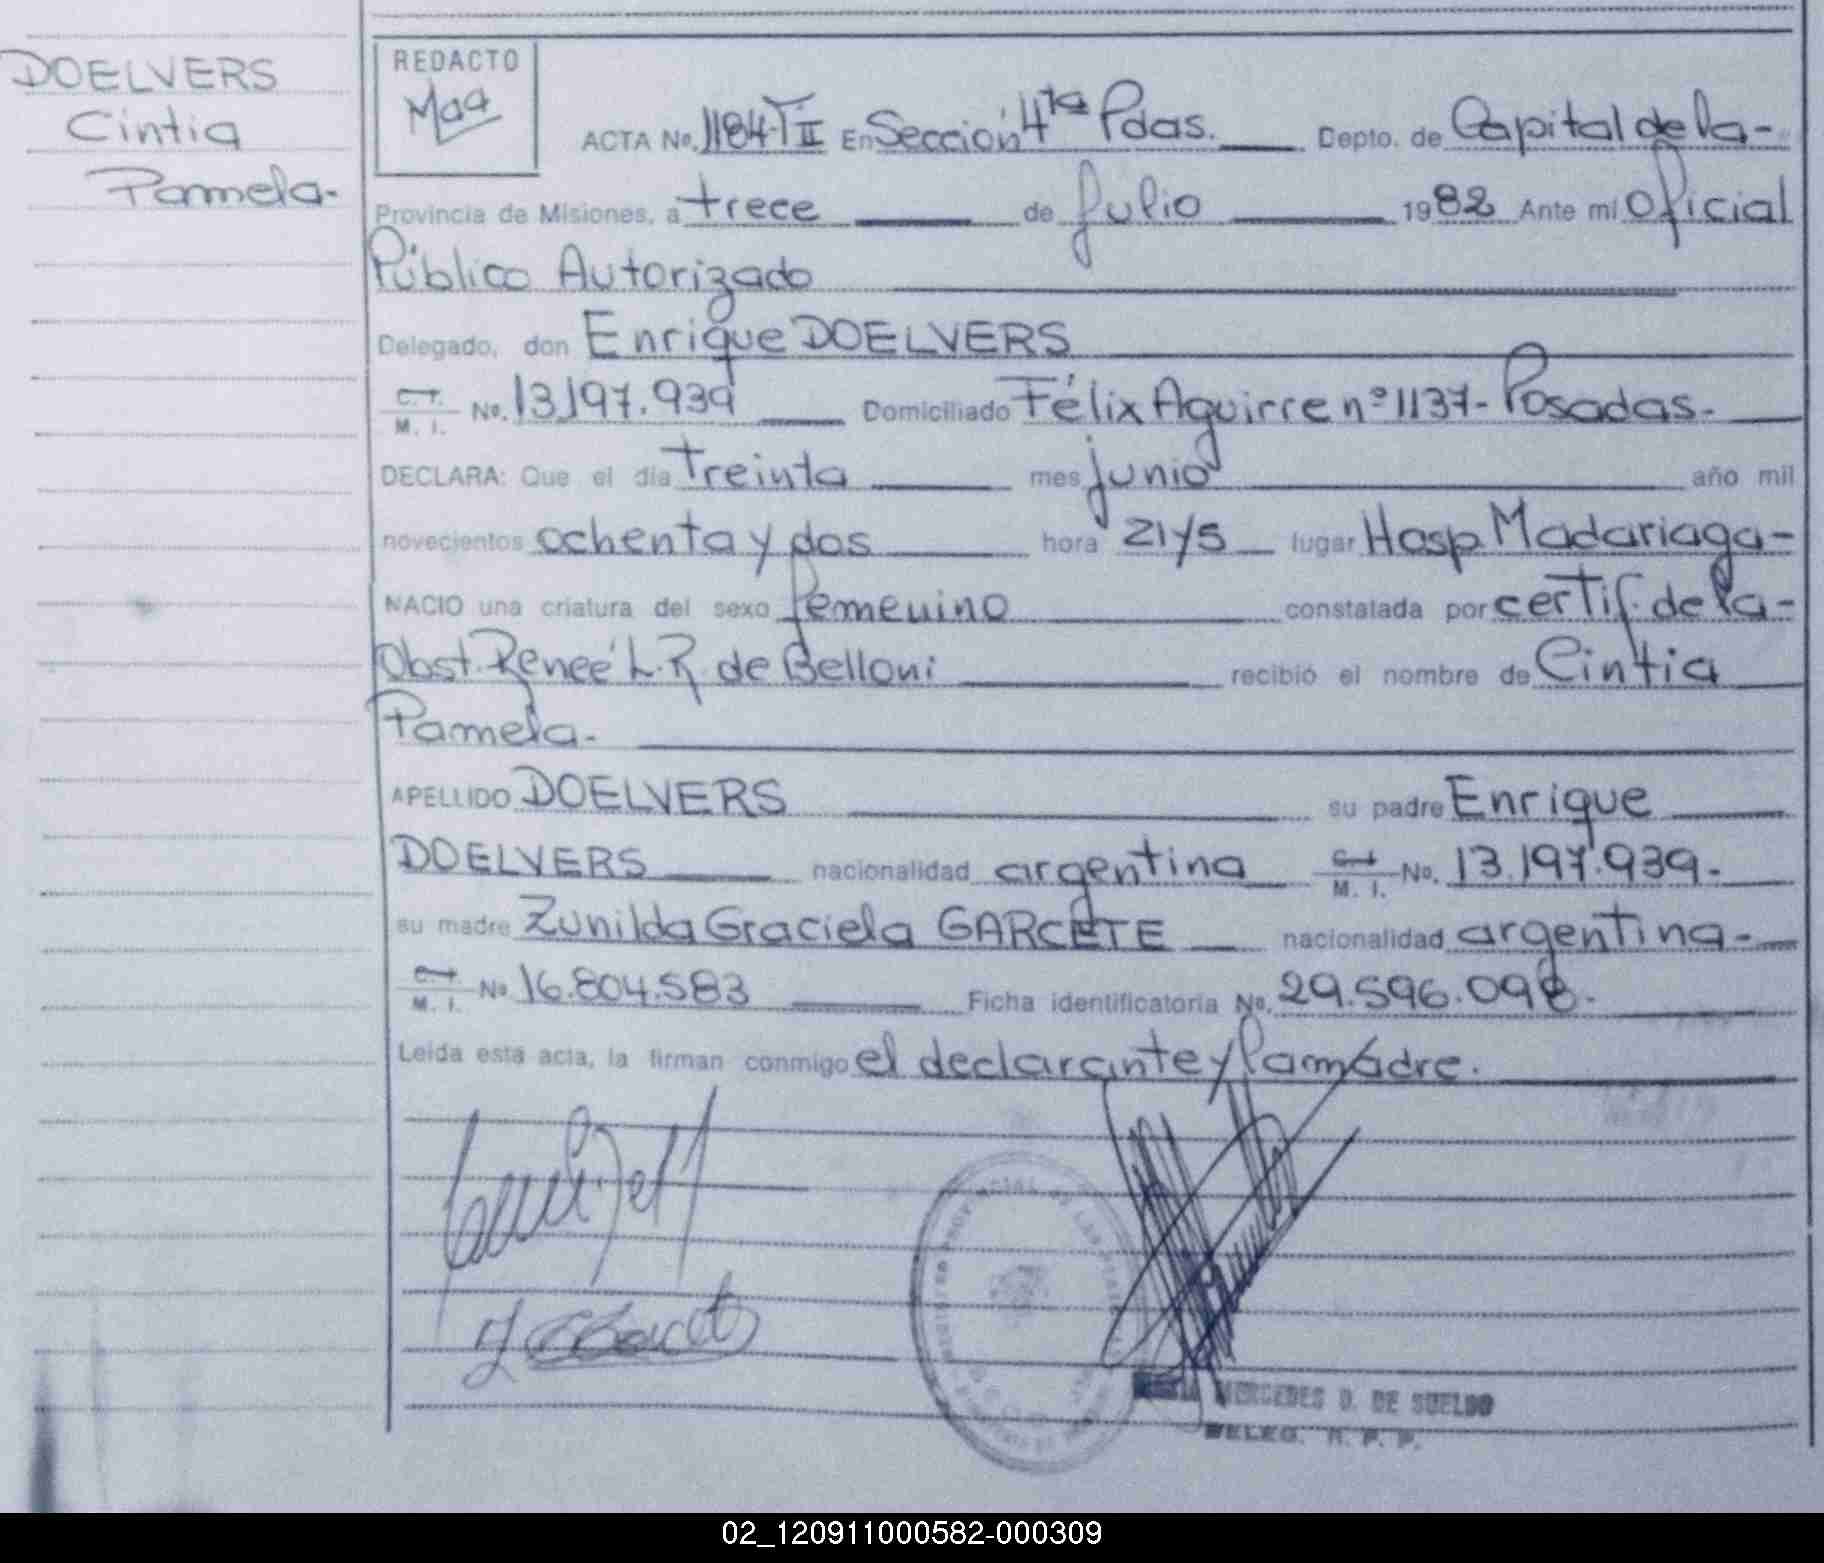 DOELVERS
Cintia
Pamela.-
REDACTO
Maa
ACTA No. 1184-T II En Sección 4ta Pdas. Depto. de Capital de la-
Provincia de Misiones, a trece de Julio 1982 Ante mí Oficial
Público Autorizado
Delegado, don Enrique DOELVERS
C. I. M. I. No. 13.197.939 Domiciliado Félix Aguirre nº 1137- Posadas.-
DECLARA: Que el día treinta mes junio año mil
novecientos ochenta y dos hora 21y5 lugar Hosp. Madariaga-
NACIO una criatura del sexo femenino constatada por certif. de la-
Obst. Reneé L.R. de Belloni recibió el nombre de Cintia
Pamela.-
APELLIDO DOELVERS su padre Enrique
DOELVERS nacionalidad argentina C. I. M. I. No. 13.197.939.-
su madre Zunilda Graciela GARCETE nacionalidad argentina.-
C. I. M. I. No 16.804.583 Ficha identificatoria No. 29.596.098.-
Leída esta acta, la firman conmigo el declarante y la madre.
MERCEDES D. DE SUELDO
DELEG. R. P. P.
02_120911000582-000309